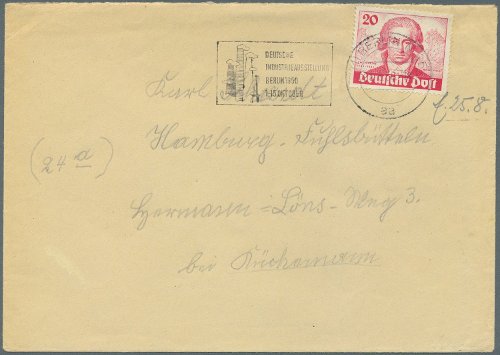 20
Deutsche Post
DEUTSCHE
INDUSTRIEAUSSTELLUNG
BERLIN 1950
1.-15. OKTOBER
aa
f. 25.8.
Karl
Hamburg-Fuhlsbüttel
(24a)
Hermann-Löns-Weg 3.
bei